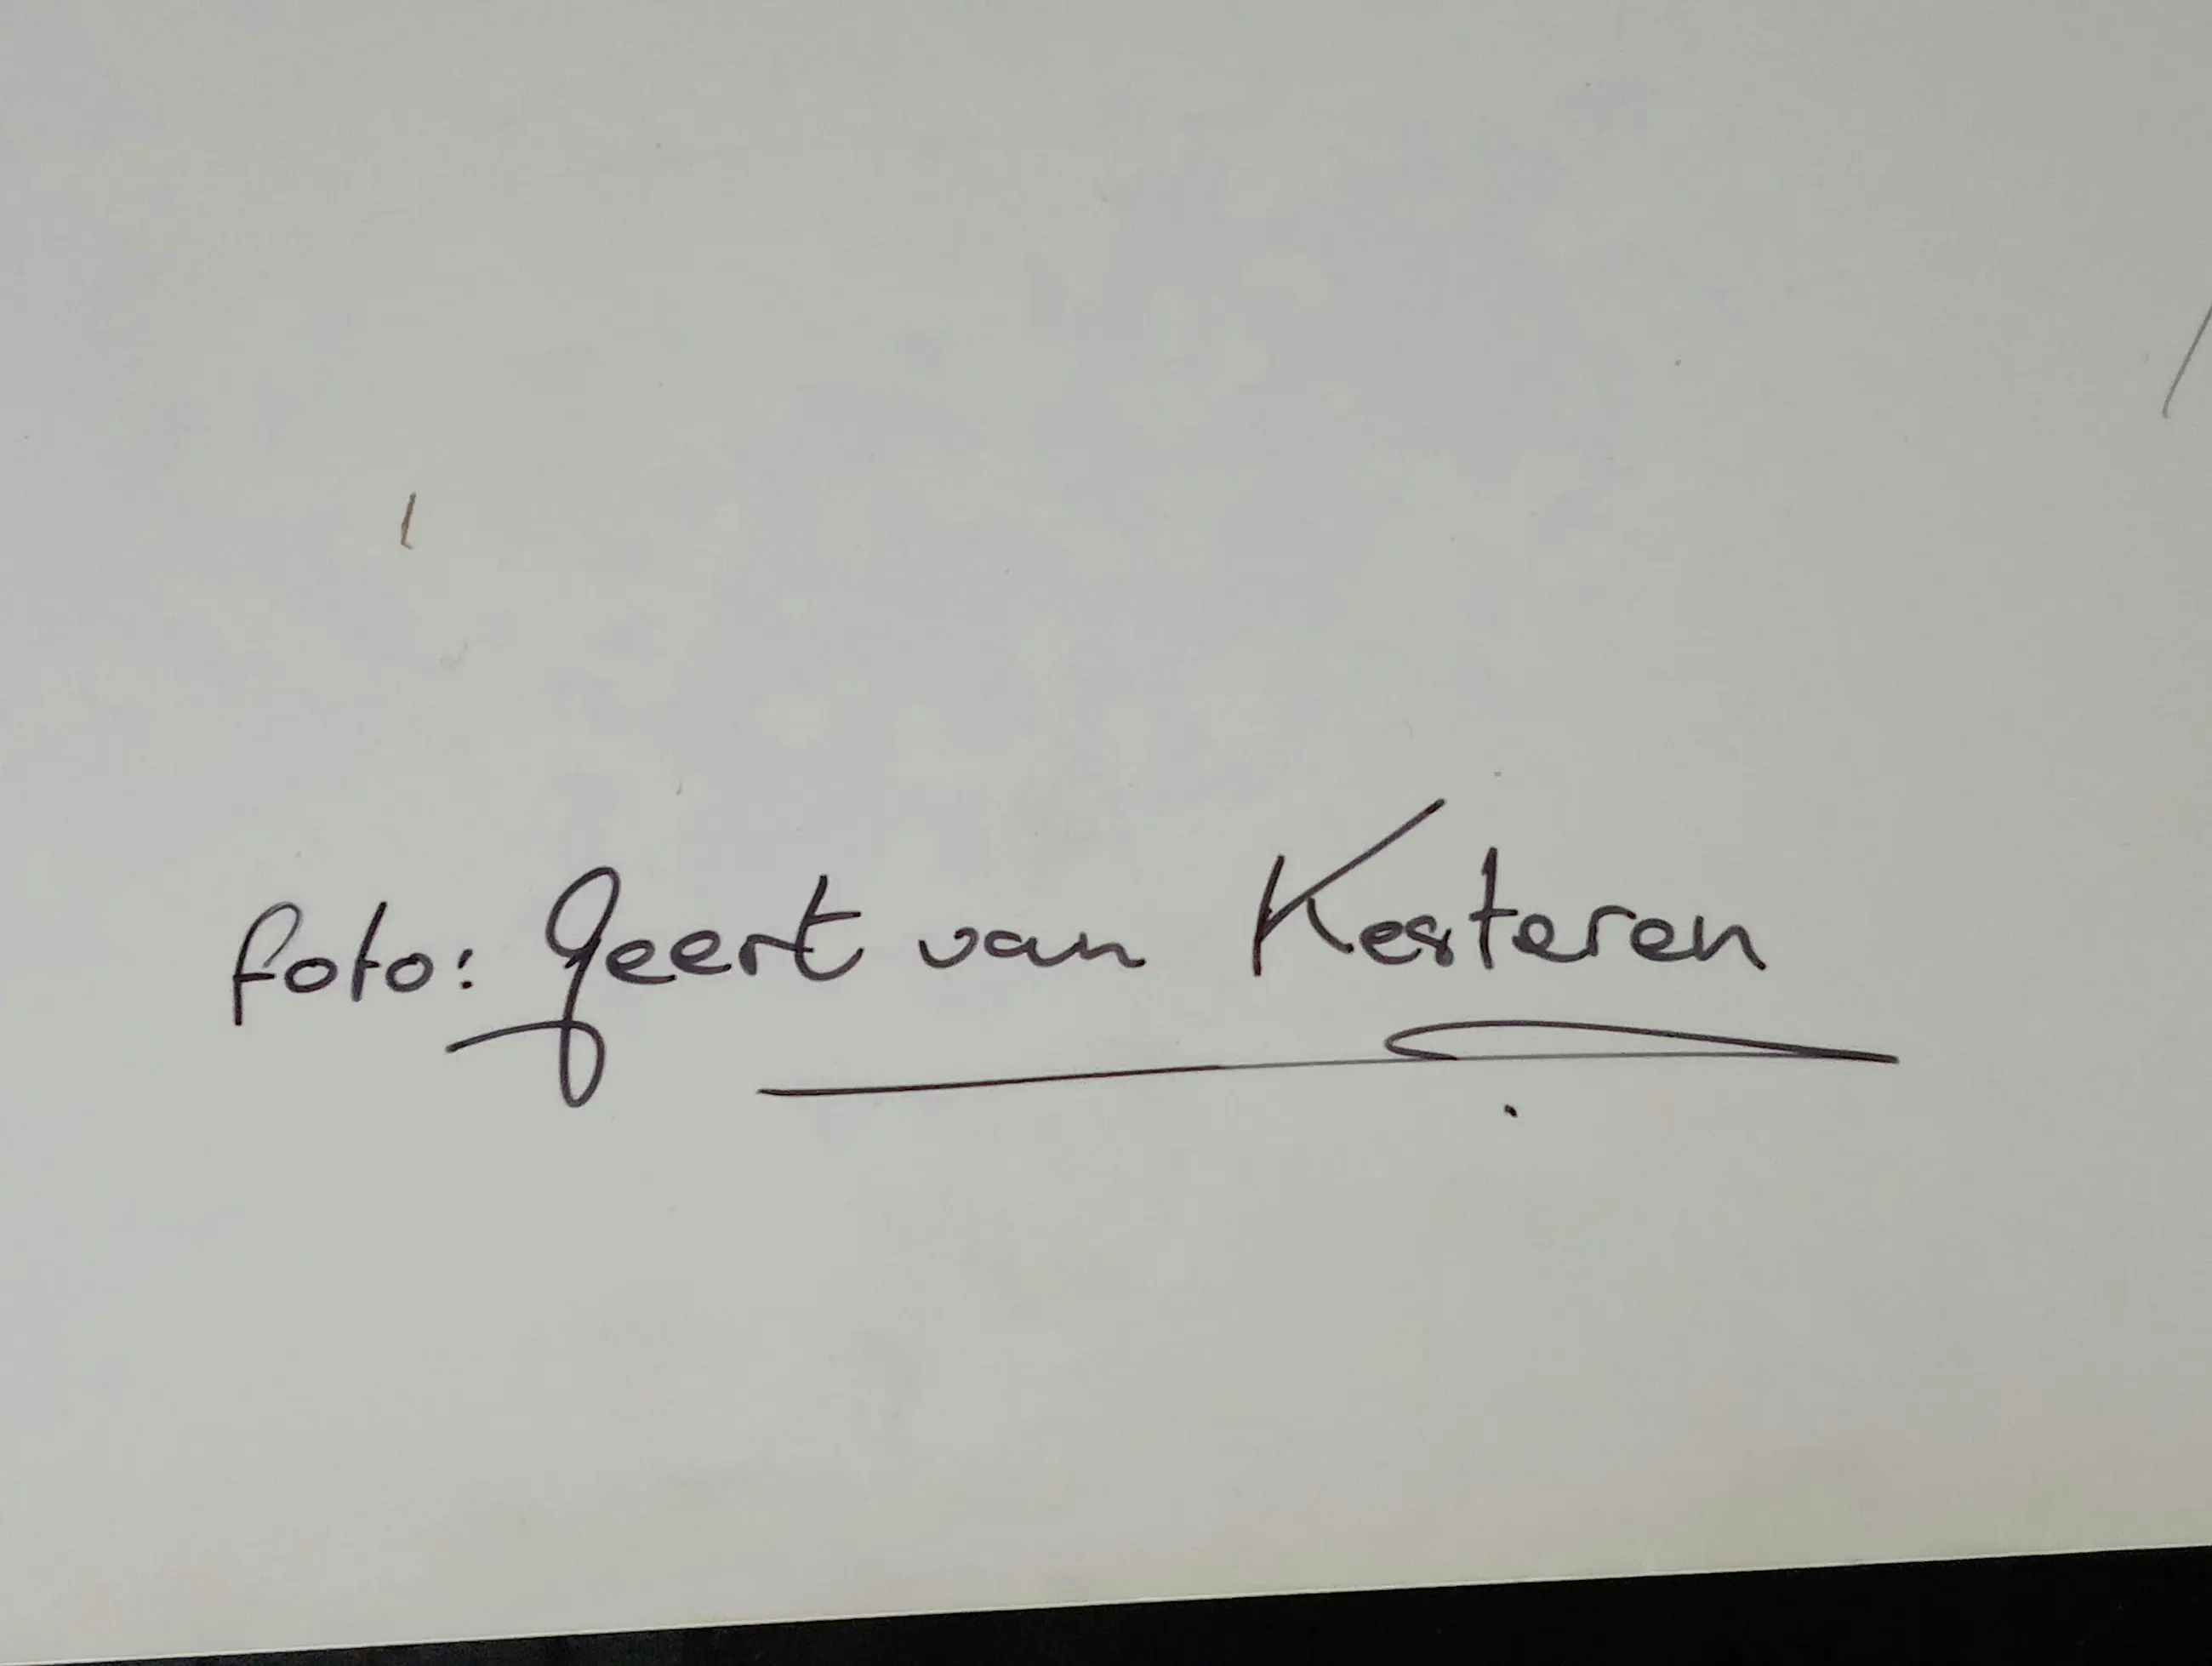 foto: Geert van Kesteren